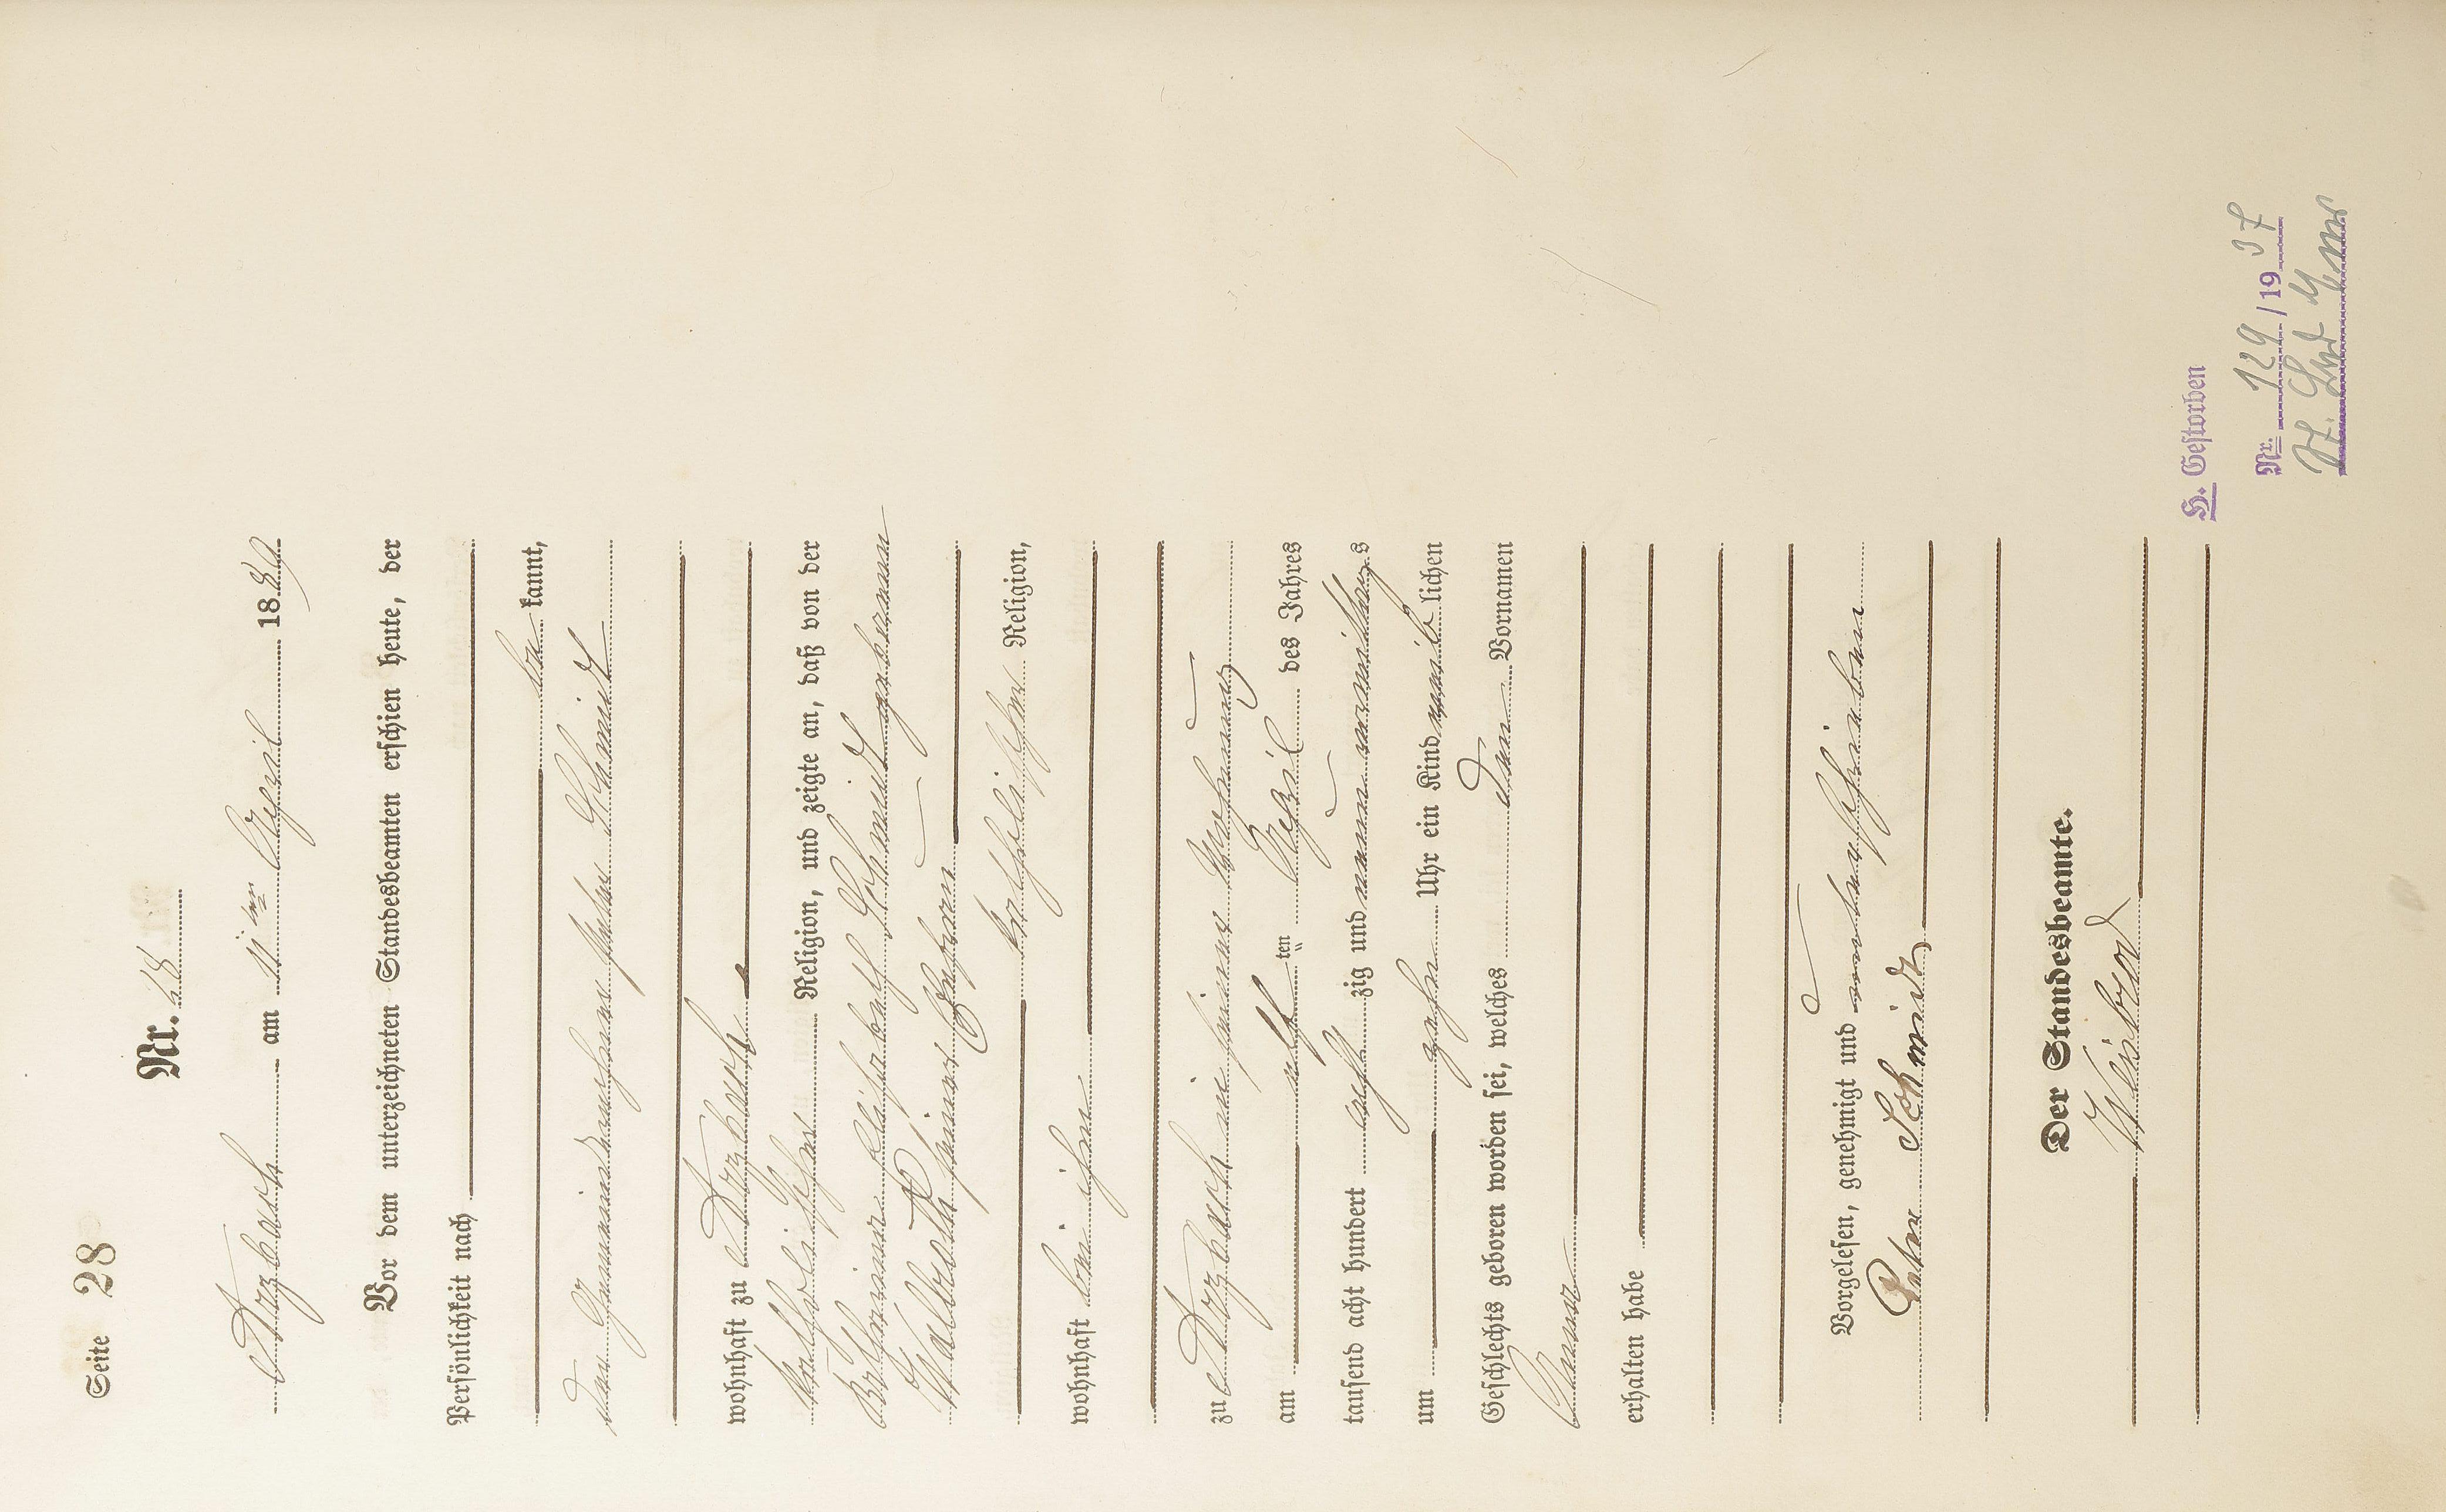 Seite 28
Nr. 28
Arzbach am 11ten April 1889
Vor dem unterzeichneten Standesbeamten erschien heute, der
Persönlichkeit nach
be kannt,
der Gemeinderechner Peter Schmidt
wohnhaft zu Arzbach
katholischer Religion, und zeigte an, daß von der
Katharina Elisabeth Schmidt geborenen
Wallroth seiner Ehefrau
katholischer Religion,
wohnhaft bei ihm
zu Arzbach in seiner Wohnung
am elften April des Jahres
tausend acht hundert achtzig und neun vormittags
um zehn Uhr ein Kind weiblichen
Geschlechts geboren worden sei, welches den Vornamen
Anna
erhalten habe
Vorgelesen, genehmigt und unterschrieben
Peter Schmidt
Der Standesbeamte.
Weisbrod
H. Gestorben
Nr. 129/1937
St. Bad Ems